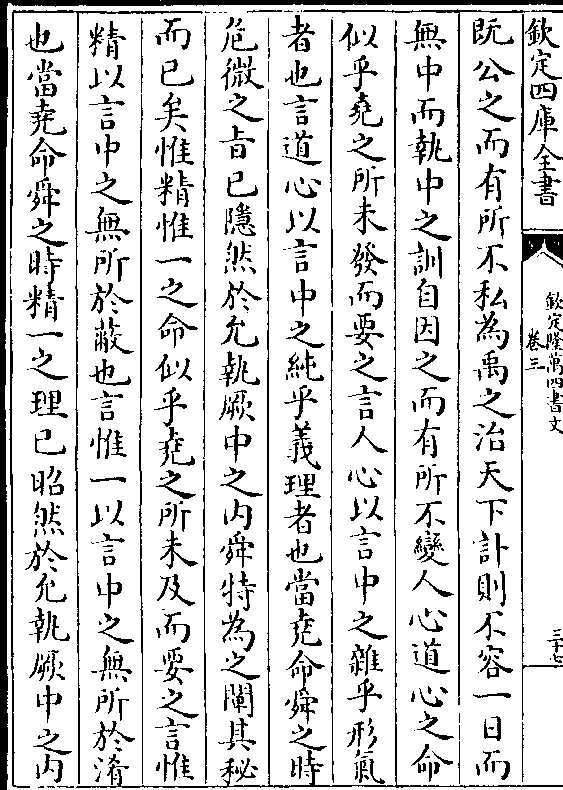 欽定四庫全書
欽定隆萬四書文
卷三
三十七
既公之而有所不私為禹之治天下計則不容一日而
無中而執中之訓自因之而有所不變人心道心之命
似乎堯之所未發而要之言人心以言中之雜乎形氣
者也言道心以言中之純乎義理者也當堯命舜之時
危微之旨已隱然於允執厥中之内舜特為之闡其秘
而已矣惟精惟一之命似乎堯之所未及而要之言惟
精以言中之無所於蔽也言惟一以言中之無所於淆
也當堯命舜之時精一之理已昭然於允執厥中之内